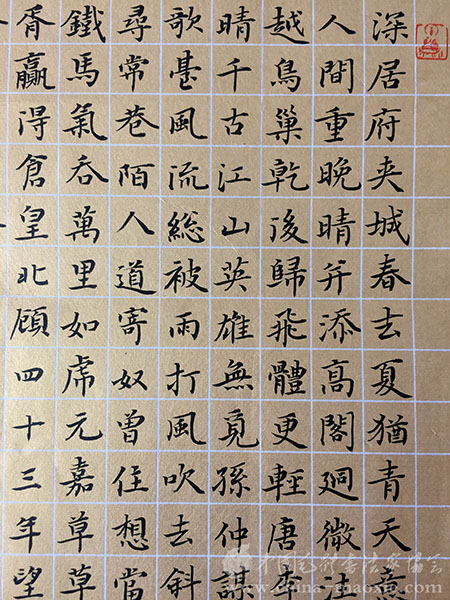 深居府夹城春去夏猶青天意
人間重晚晴并添高閣迥微注
越鳥巢乾後歸飛體更輕唐李
晴千古江山英雄無覓孫仲謀
歌臺風流総被雨打風吹去斜
尋常巷陌人道寄奴曾住想當
鐵馬氣吞萬里如虎元嘉草草
胥贏得倉皇北顧四十三年望